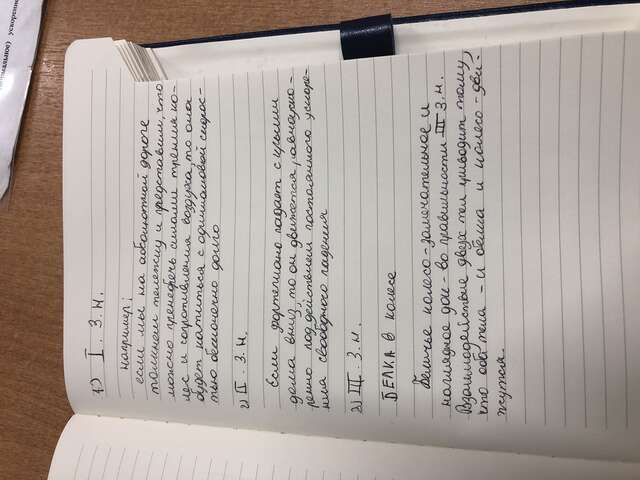 рмальное) ускорение
1) I. З. Н.
например;
если мы на абсолютной дороге
толкнем тележку и представим, что
можно пренебречь силами трения ко-
лес и сопротивления воздуха, то она
будет катиться с одинаковой скорос-
тью бесконечно долго
2) II. З. Н.
Если фортепиано падает с крыши
дома вниз, то он движется, равноуско-
ренно под действием постоянного ускоре-
ния свободного падения
3) III. З. Н.
БЕЛКА в колесе
Беличье колесо - замечательное и
наглядное док-во правильности III З. Н.
Взаимодействие двух тел приводит тому,
что оба тела - и белка и колесо - дви-
жутся.